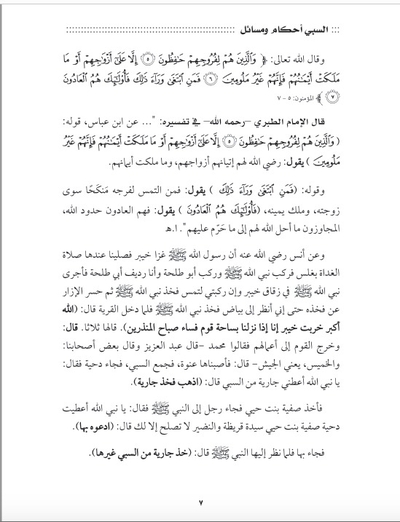 السبي أحكام ومسائل
وقال الله تعالى: ﴿ وَٱلَّذِينَ هُمْ لِفُرُوجِهِمْ حَٰفِظُونَ ۝٥ إِلَّا عَلَىٰٓ أَزْوَٰجِهِمْ أَوْ مَا
مَلَكَتْ أَيْمَٰنُهُمْ فَإِنَّهُمْ غَيْرُ مَلُومِينَ ۝٦ فَمَنِ ٱبْتَغَىٰ وَرَآءَ ذَٰلِكَ فَأُو۟لَٰٓئِكَ هُمُ ٱلْعَادُونَ
۝٧ ﴾ المؤمنون: ٥ - ٧
قال الإمام الطبري -رحمه الله- في تفسيره: "... عن ابن عباس، قوله:
﴿ وَٱلَّذِينَ هُمْ لِفُرُوجِهِمْ حَٰفِظُونَ ۝٥ إِلَّا عَلَىٰٓ أَزْوَٰجِهِمْ أَوْ مَا مَلَكَتْ أَيْمَٰنُهُمْ فَإِنَّهُمْ غَيْرُ
مَلُومِينَ ﴾ يقول: رضي الله لهم إتيانهم أزواجهم، وما ملكت أيمانهم.
وقوله: ﴿فَمَنِ ٱبْتَغَىٰ وَرَآءَ ذَٰلِكَ ﴾ يقول: فمن التمس لفرجه مَنكَحًا سوى
زوجته، وملك يمينه، ﴿فَأُو۟لَٰٓئِكَ هُمُ ٱلْعَادُونَ ﴾ يقول: فهم العادون حدود الله،
المجاوزون ما أحل الله لهم إلى ما حَرّم عليهم". ا.هـ
وعن أنس رضي الله عنه أن رسول الله ﷺ غزا خيبر فصلينا عندها صلاة
الغداة بغلس فركب نبي الله ﷺ وركب أبو طلحة وأنا رديف أبي طلحة فأجرى
نبي الله ﷺ في زقاق خيبر وإن ركبتي لتمس فخذ نبي الله ﷺ ثم حسر الإزار
عن فخذه حتى إني أنظر إلى بياض فخذ نبي الله ﷺ فلما دخل القرية قال: (الله
أكبر خربت خيبر إنا إذا نزلنا بساحة قوم فساء صباح المنذرين). قالها ثلاثا. قال:
وخرج القوم إلى أعمالهم فقالوا محمد -قال عبد العزيز وقال بعض أصحابنا:
والخميس، يعني الجيش- قال: فأصبناها عنوة، فجمع السبي، فجاء دحية فقال:
يا نبي الله أعطني جارية من السبي قال: (اذهب فخذ جارية).
فأخذ صفية بنت حيي فجاء رجل إلى النبي ﷺ فقال: يا نبي الله أعطيت
دحية صفية بنت حيي سيدة قريظة والنضير لا تصلح إلا لك قال: (ادعوه بها).
فجاء بها فلما نظر إليها النبي ﷺ قال: (خذ جارية من السبي غيرها).
٧